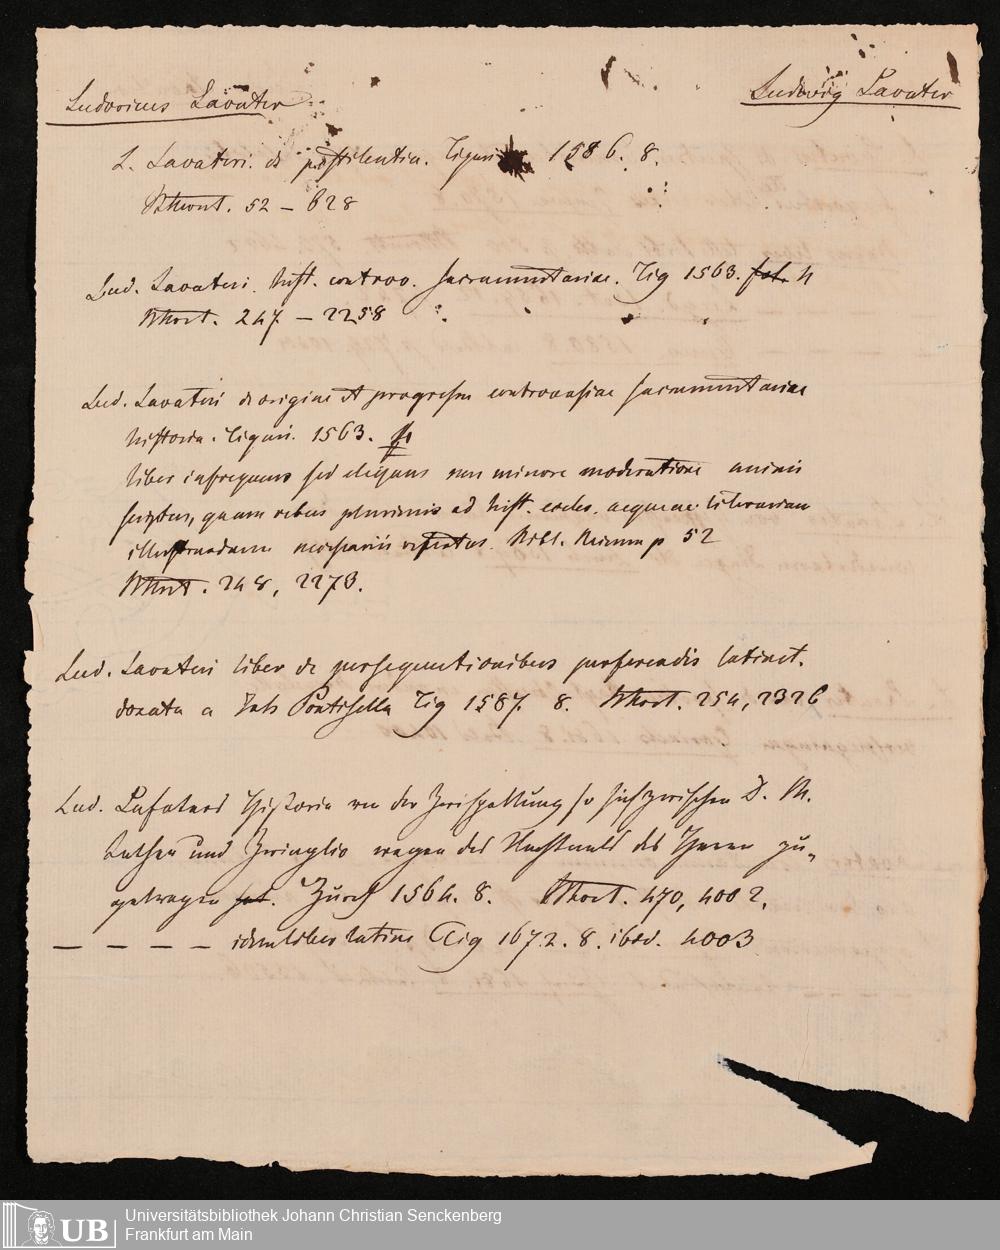 Ludovicus Lavater
Ludwig Lavater
L. Lavateri. de pestilentia. Tiguri 1586. 8.
52 – 628
Lud. Lavateri. hist. controv. sacramentariae. Tig 1563. fol. 4
247 – 2258
Lud. Lavateri de origine et progressu controversiae sacramentariae
historia. Tiguri. 1563.
liber infrequens sed elegans non minore moderatione animi
scriptus, quam rebus plurimis ad hist. eccles. aeque ac literariam
illustrandam necessariis refertus. Bibl. p 52
248, 2273.
Lud. Lavateri liber de persequutionibus perferendis latinit.
donata a Pontisella Tig 1587. 8. 254, 2326
Lud. Lafaters Historia von der Zwispaltung so sich zwischen D. M.
Luther und Zwinglio wegen des Nachtmals des Herren zu-
getragen hat. Zürch 1564. 8. 470, 4002.
— — — — idem liber latine Tig 1672. 8. ibid. 4003
UB
Universitätsbibliothek Johann Christian Senckenberg
Frankfurt am Main